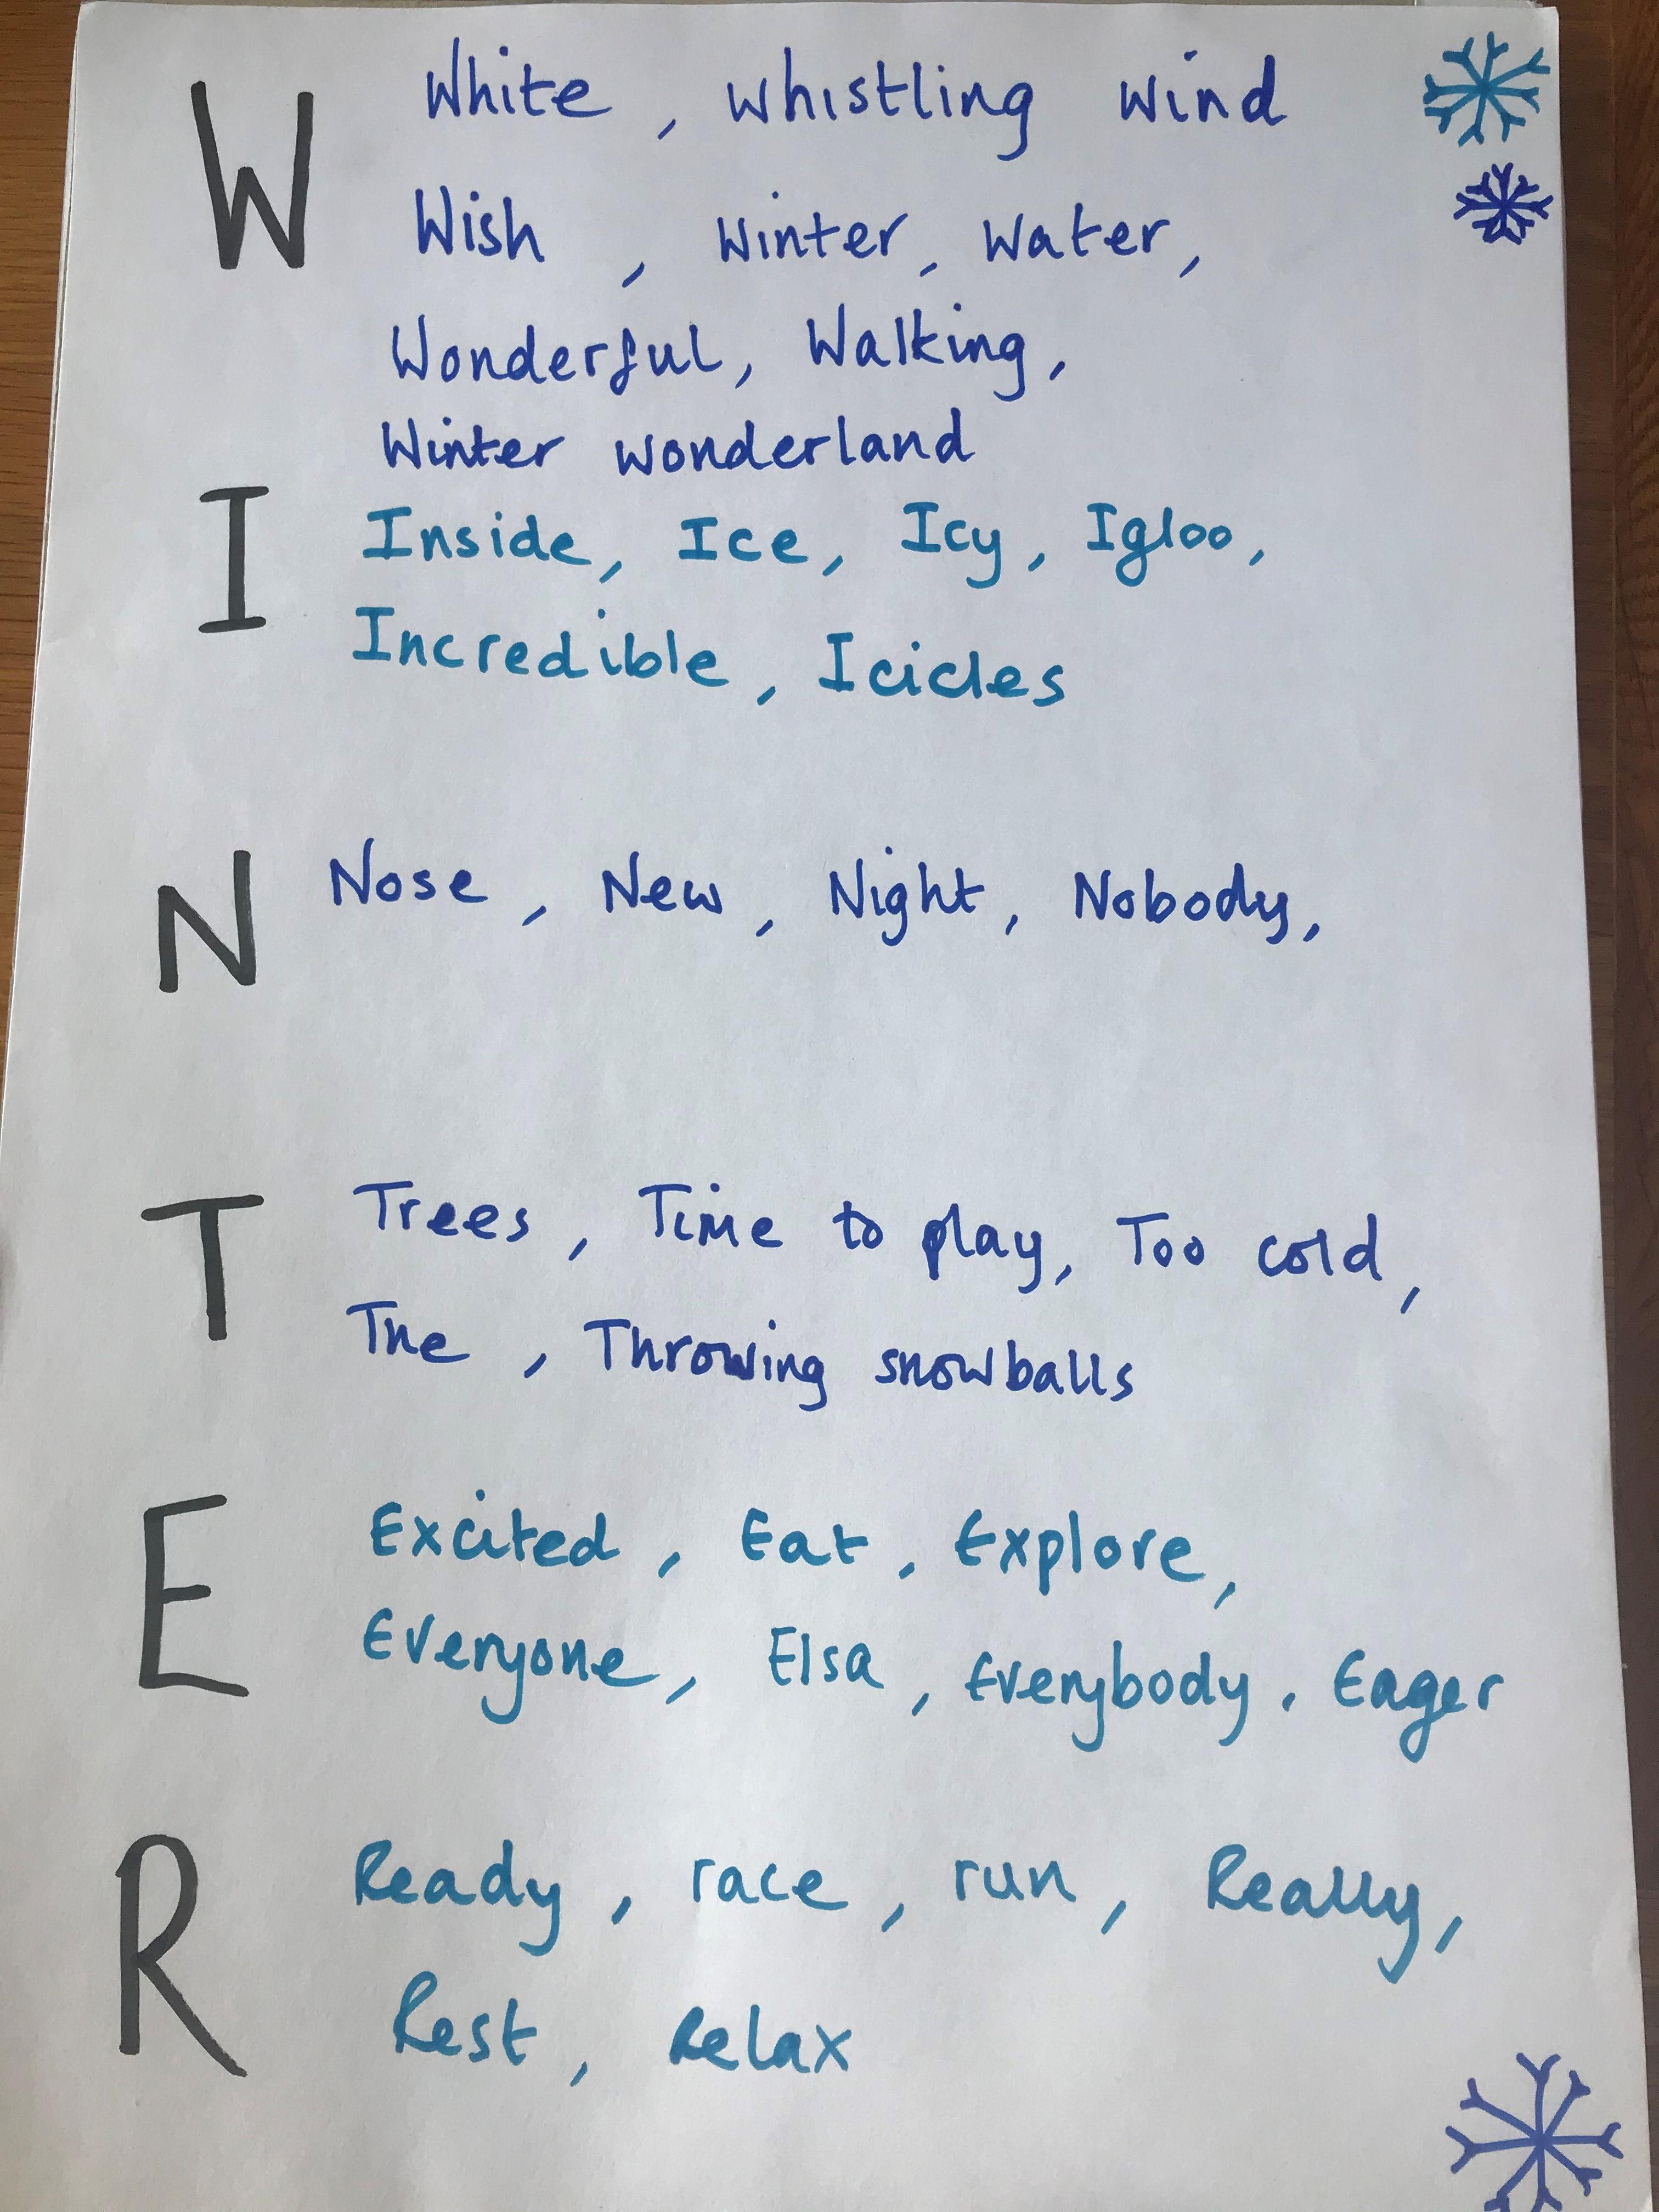 W White, whistling wind
Wish, Winter, Water,
Wonderful, Walking,
Winter wonderland
I Inside, Ice, Icy, Igloo,
Incredible, Icicles
N Nose, New, Night, Nobody,
T Trees, Time to play, Too cold,
The, Throwing snowballs
E Excited, Eat, Explore,
Everyone, Elsa, Everybody, Eager
R Ready, race, run, Really,
Rest, Relax